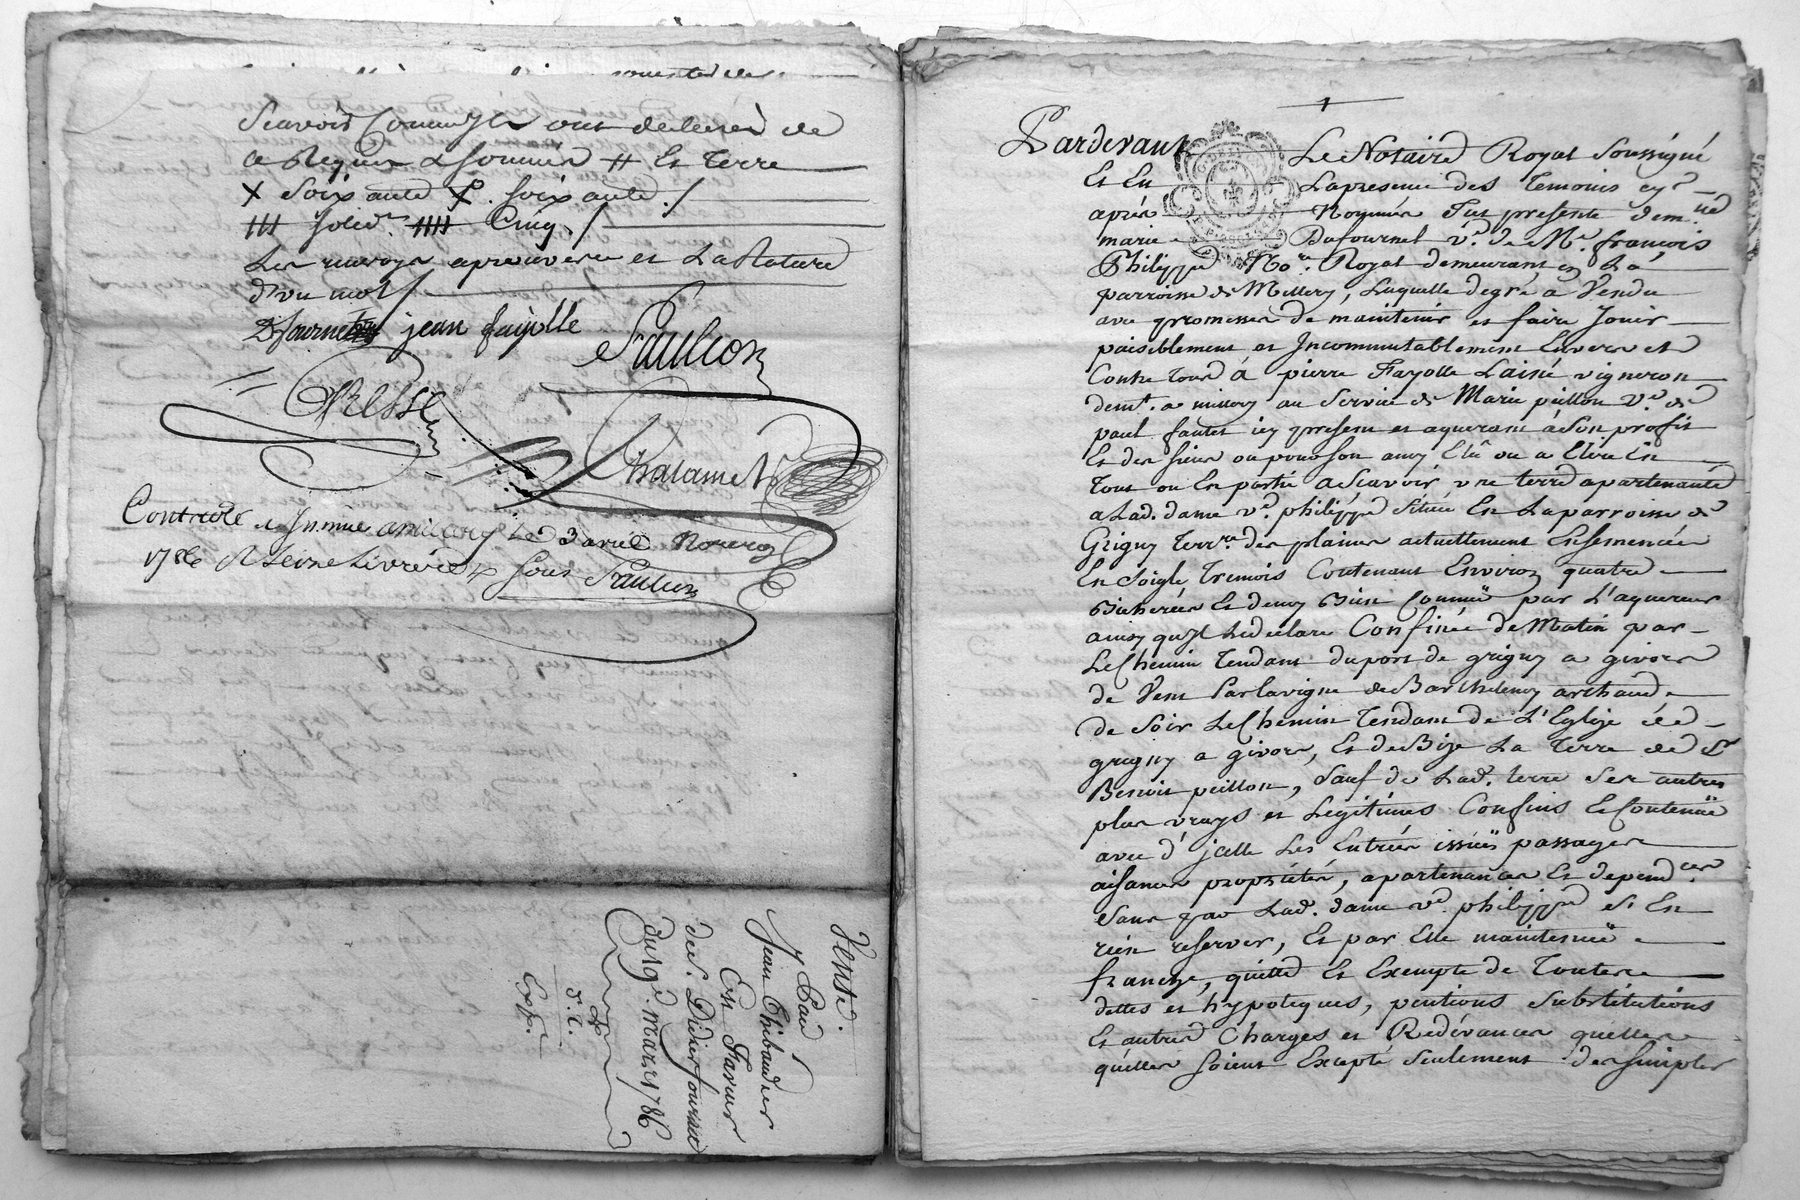 Scavoir Comme Ils ont declaré de
ce Requis & sommés # Et Terre
X Soixante X. soixante ./.
## Cinq ./.
Les renvoys aprouvés et La Rature
d'un mot /
Dufournel jean faÿolle
Paulion
Presse
Chalamel
Controlé a le 3 avril
1786 R Seize Livres sols Paulion
Vente.
Par
Jean Thibaudier
En Faveur
de S. Didier fournel
du 19e. mars 1786
Exp.
Pardevant Le Notaire Royal soussigné
Et En La presence des Temoins cy
après Nommés fut presente dem.lle
marie Dufournel v.e de Me. françois
Philippe No.re Royal demeurant en La
parroisse de Millery, Laquelle degré a Vendu
avec promesse de maintenir et faire Jouir
paisiblement et Incommutablement Envers et
Contre tous à pierre Fayolle Laîné vigneron
dem.t a millery au Service de Marie peillon V.e de
paul fautet icy present et aquerant à Son profit
Et des siens ou pour son amy Elû ou a Elire En
Tout ou En partie a Scavoir une terre apartenante
a Lad. dame v.e philippe Sitüée En La parroisse de
Grigny Terr.re des plaines actuellement Ensemencée
En Soigle Tremois Contenant Environ quatre
Bicherées Et demy Bien Connuë par L'aquereur
ainsy qu'Il Le declare Confinée de Matin par
Le Chemin Tendant du port de grigny a givors
de Vent Par la vigne de Barthelemy archaud
de Soir Le Chemin Tendant de L'Eglise de
grigny a givors, Et de Bize La Terre de Sr
Benoit peillon, Sauf de Lad. terre Ses autres
plus vrays et Legitimes Confins Et Contenuë
avec d'icelle Les Entrées issuës passages
aisances proprietés, apartenances Et depend.ces
Sans que Lad. dame v.e philippe S'En
rien reserver, Et par Elle maintenuë
franche, quitte Et Exempte de Toutes
dettes et hypoteques, pentions Substitutions
Et autres Charges et Redevances quelles
quelles Soient Excepté Seulement des simples